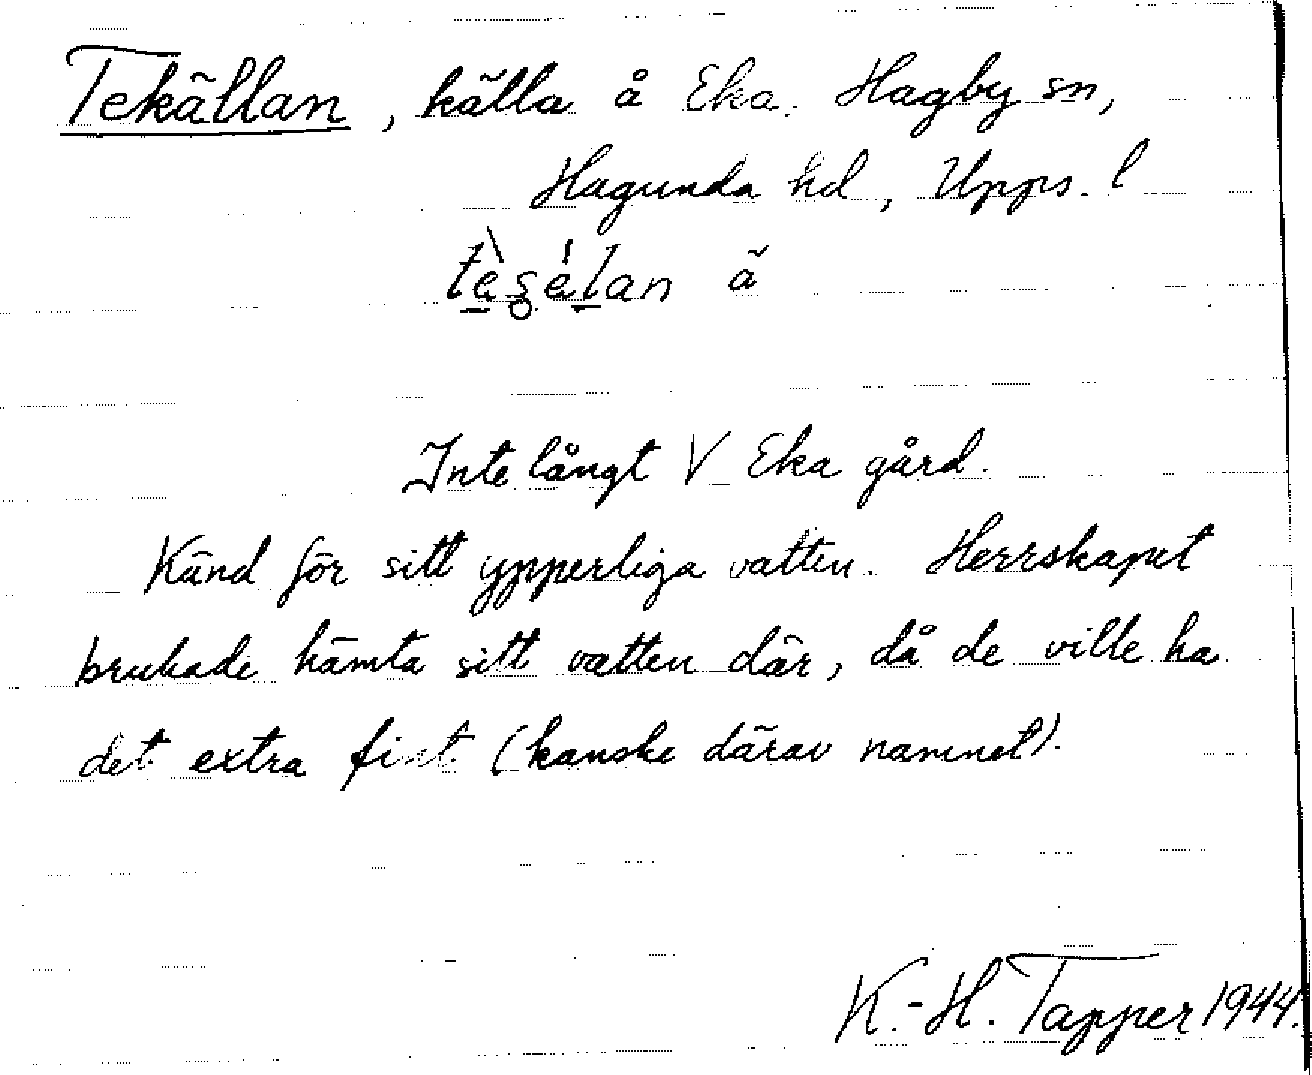 Tekällan, källa å Eka. Hagby sn,
Hagunda hd, Upps. l
ã
Inte långt V Eka gård.
Känd för sitt ypperliga vatten. Herrskapet
brukade hämta sitt vatten där, då de ville ha
det extra fint (kanske därav namnet).
K.-H. Tapper 1944.